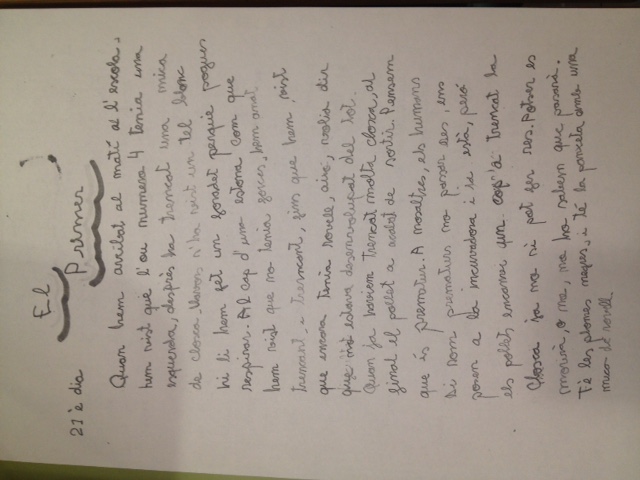 21è dia
El
Primer
Quan hem arribat al matí al l'escola,
hem vist que l'ou numero 4 tenia una
esquerda, desprès ha trencat una mica
de closca. Llavors s'ha vist un tel blanc
hi li hem fet un foradet perque pogues
respirar. Al cap d'una estona com que
hem vist que no tenia forces, hem anat
trencant i trencant, fins que hem vist
que encara tenia rovell, això, volia dir
que no estava desenvolupat del tot.
Quan ja haviem trencat molta closca, al
final el pollet a acabat de sortir. Pensem
que és prematur. A nosaltres, els humans
si nom prematurs no passa res, ens
posen a la incuvadora i ja està, però
els pollets encanvi un cop a trencat la
closca ja no ni pot fer res. Potser es
morirà, o no, no ho sabem que pasarà.
Té les plomes negres, i té la panxeta amb una
mica de rovell.